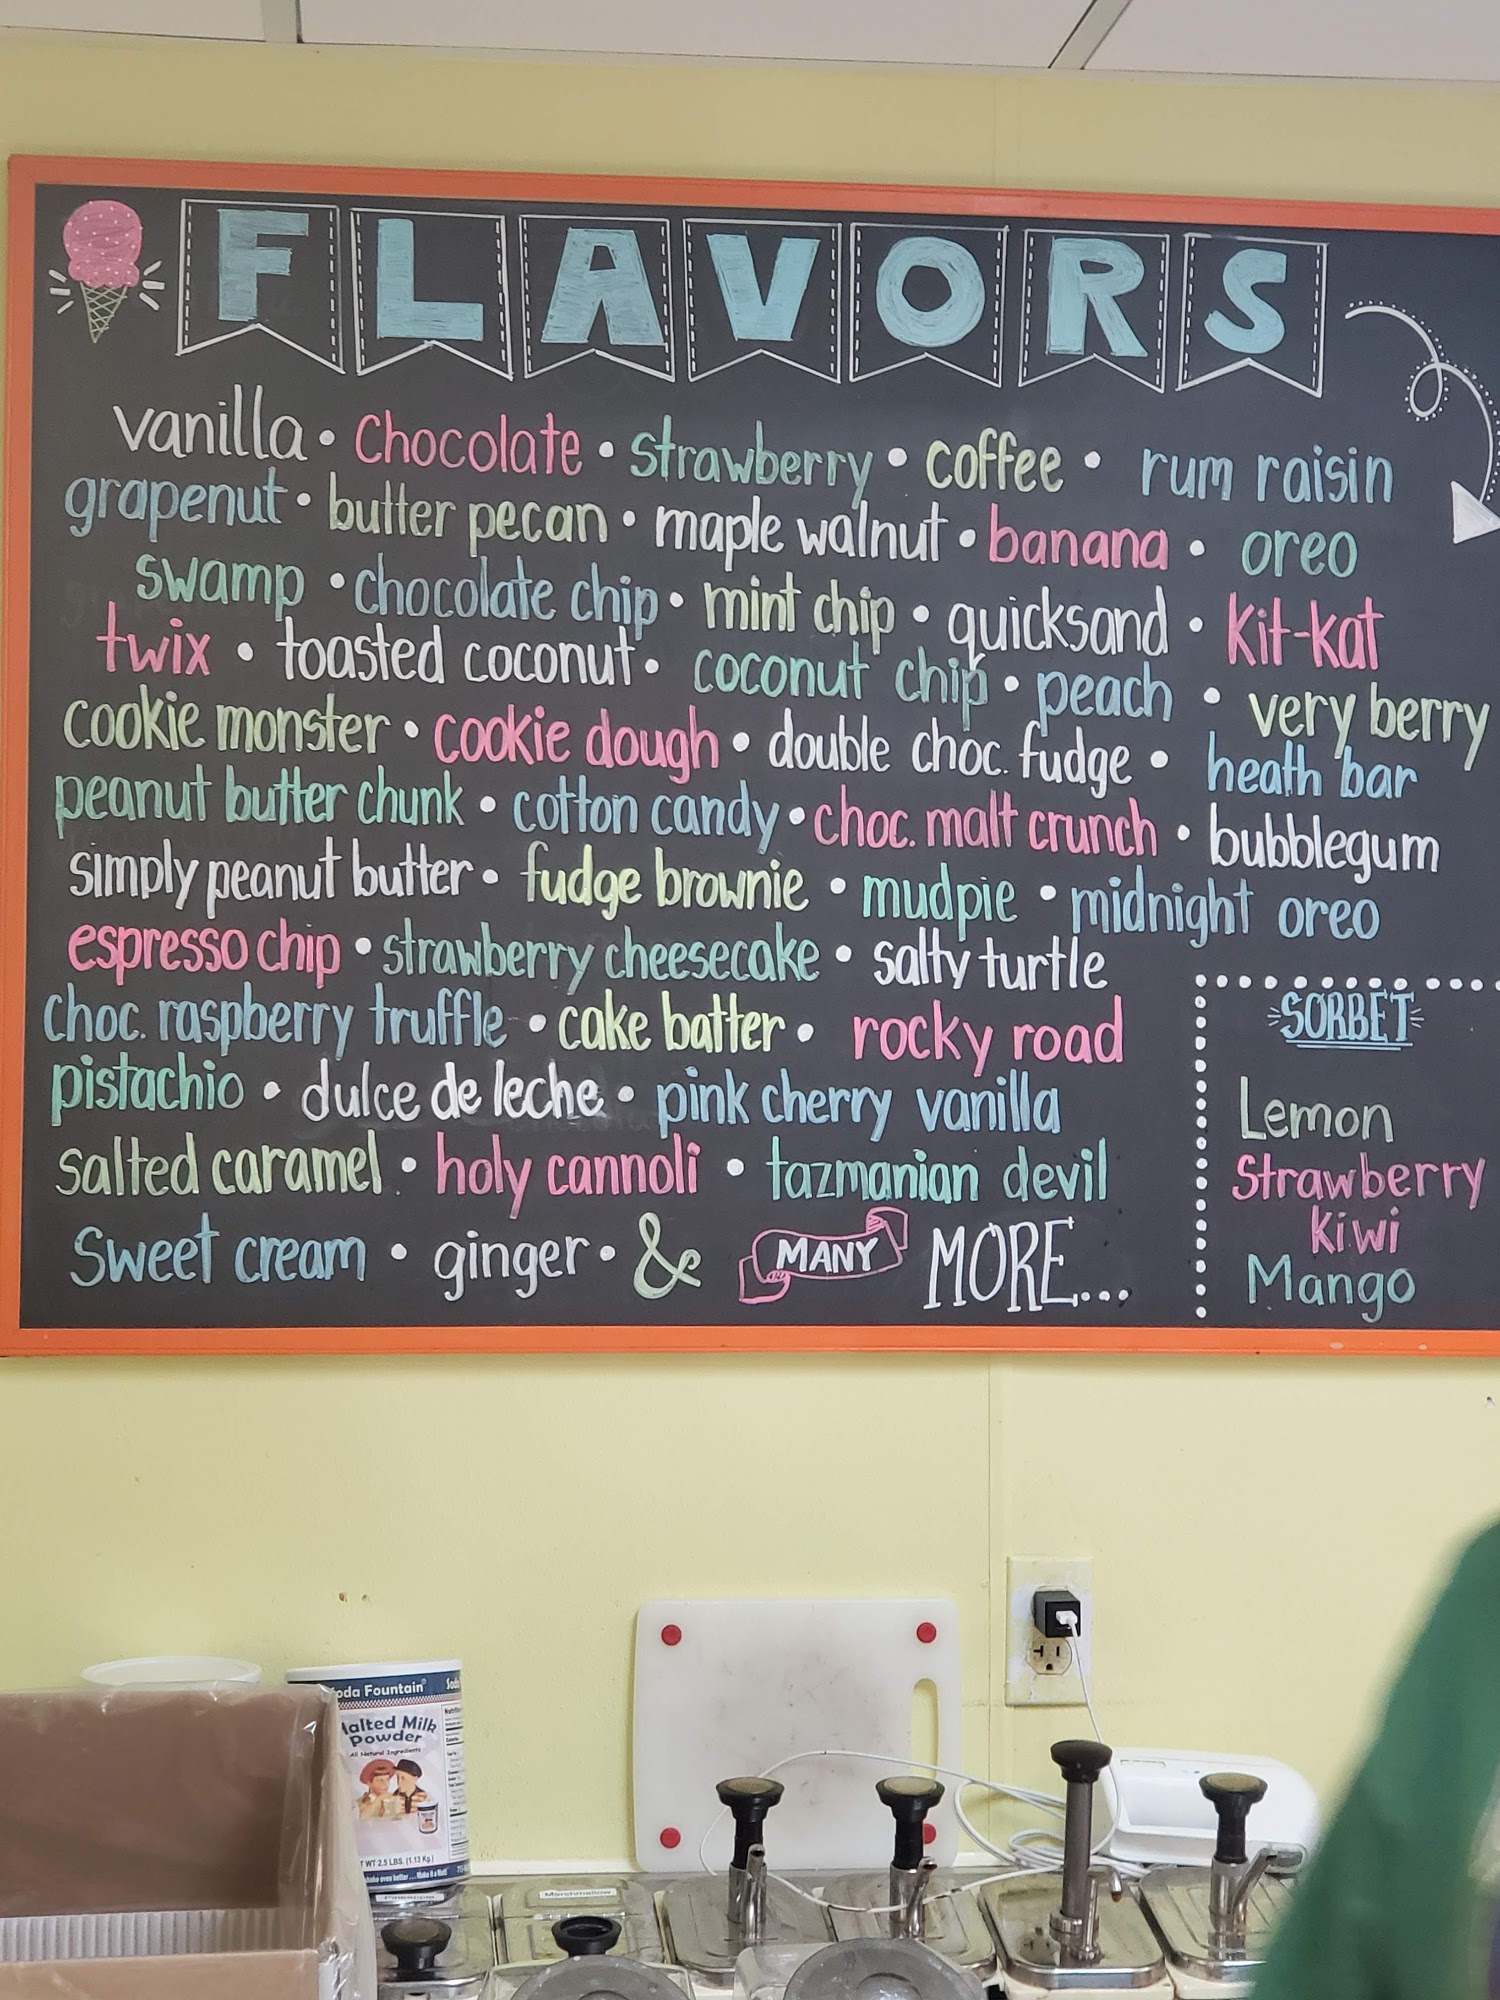 FLAVORS
vanilla • Chocolate • strawberry • coffee • rum raisin
grapenut • butter pecan • maple walnut • banana • oreo
swamp • chocolate chip • mint chip • quicksand • kit-kat
twix • toasted coconut • coconut chip • peach • very berry
cookie monster • cookie dough • double choc. fudge • heath bar
peanut butter chunk • cotton candy • choc. malt crunch • bubblegum
simply peanut butter • fudge brownie • mudpie • midnight oreo
espresso chip • strawberry cheesecake • salty turtle
choc. raspberry truffle • cake batter • rocky road
pistachio • dulce de leche • pink cherry vanilla
salted caramel • holy cannoli • tazmanian devil
Sweet cream • ginger • & MANY MORE...
SORBET
Lemon
Strawberry
kiwi
Mango
oda Fountain
alted Milk
Powder
All Natural Ingredients
T WT 2.5 LBS. (1.13 Kg)
Pineapple
Marshmallow